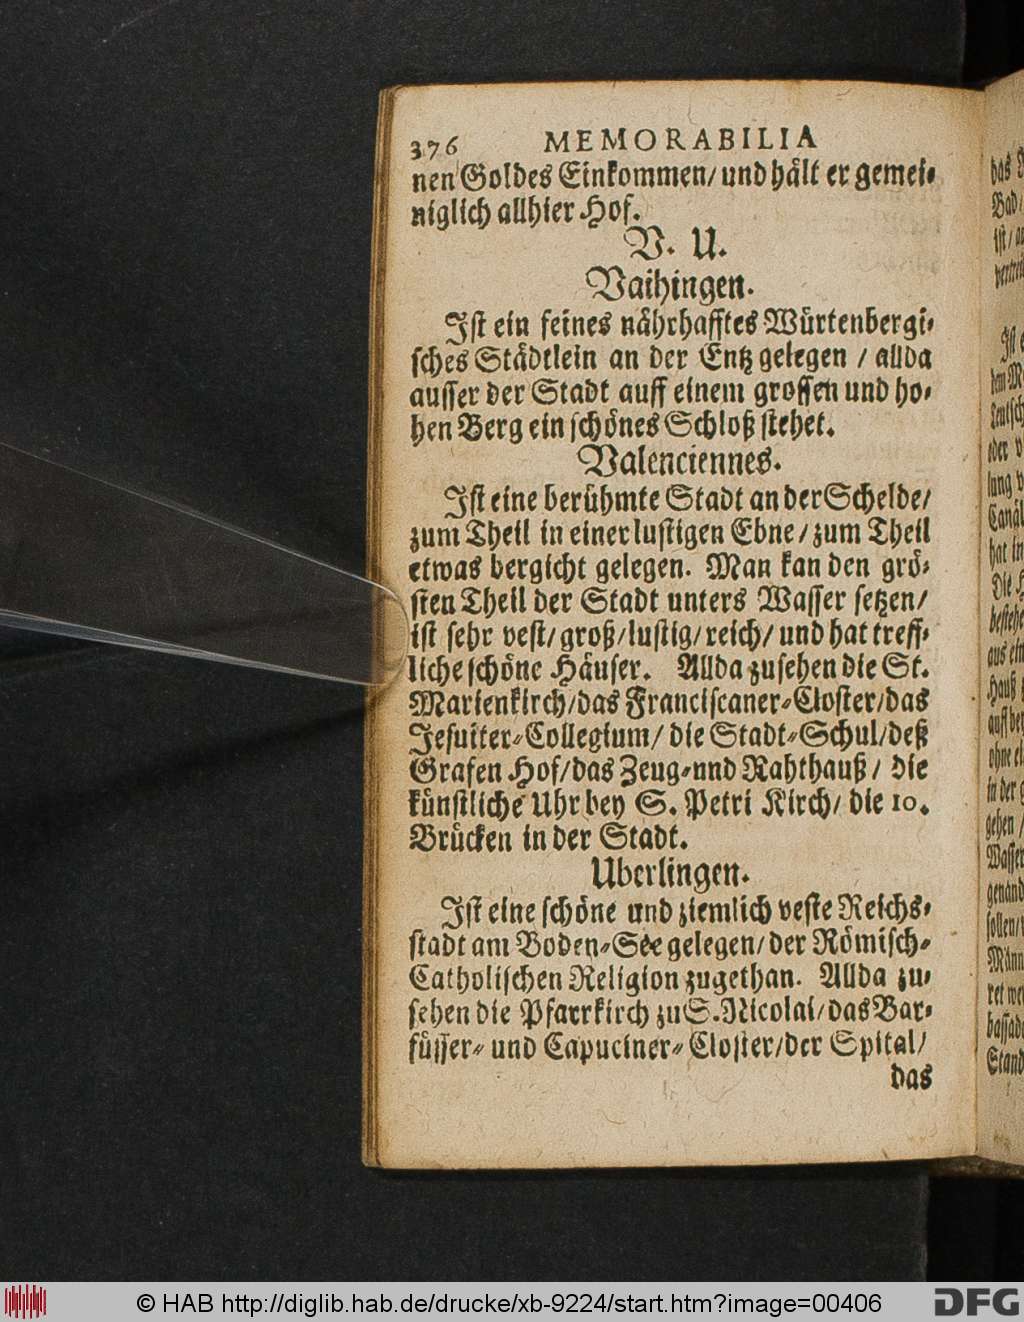 376 MEMORABILIA
nen Goldes Einkommen/ und hält er gemei-
niglich allhier Hof.
V. U.
Vaihingen.
Ist ein feines nährhafftes Würtenbergi-
sches Städtlein an der Entz gelegen / allda
ausser der Stadt auff einem grossen und ho-
hen Berg ein schönes Schloß stehet.
Valenciennes.
Ist eine berühmte Stadt an der Schelde/
zum Theil in einer lustigen Ebne / zum Theil
etwas bergicht gelegen. Man kan den grö-
sten Theil der Stadt unters Wasser setzen/
ist sehr vest/ groß/ lustig/ reich/ und hat treff-
liche schöne Häuser. Allda zusehen die St.
Marienkirch/das Franciscaner-Closter/das
Jesuiter-Collegium/ die Stadt-Schul/deß
Grafen Hof/das Zeug-und Rahthauß/ die
künstliche Uhr bey S. Petri Kirch/ die 10.
Brücken in der Stadt.
Uberlingen.
Ist eine schöne und ziemlich veste Reichs-
stadt am Boden-See gelegen/ der Römisch-
Catholischen Religion zugethan. Allda zu-
sehen die Pfarrkirch zu S. Nicolai/das Bar-
füsser- und Capuciner-Closter/der Spital/
das
© HAB http://diglib.hab.de/drucke/xb-9224/start.htm?image=00406
DFG